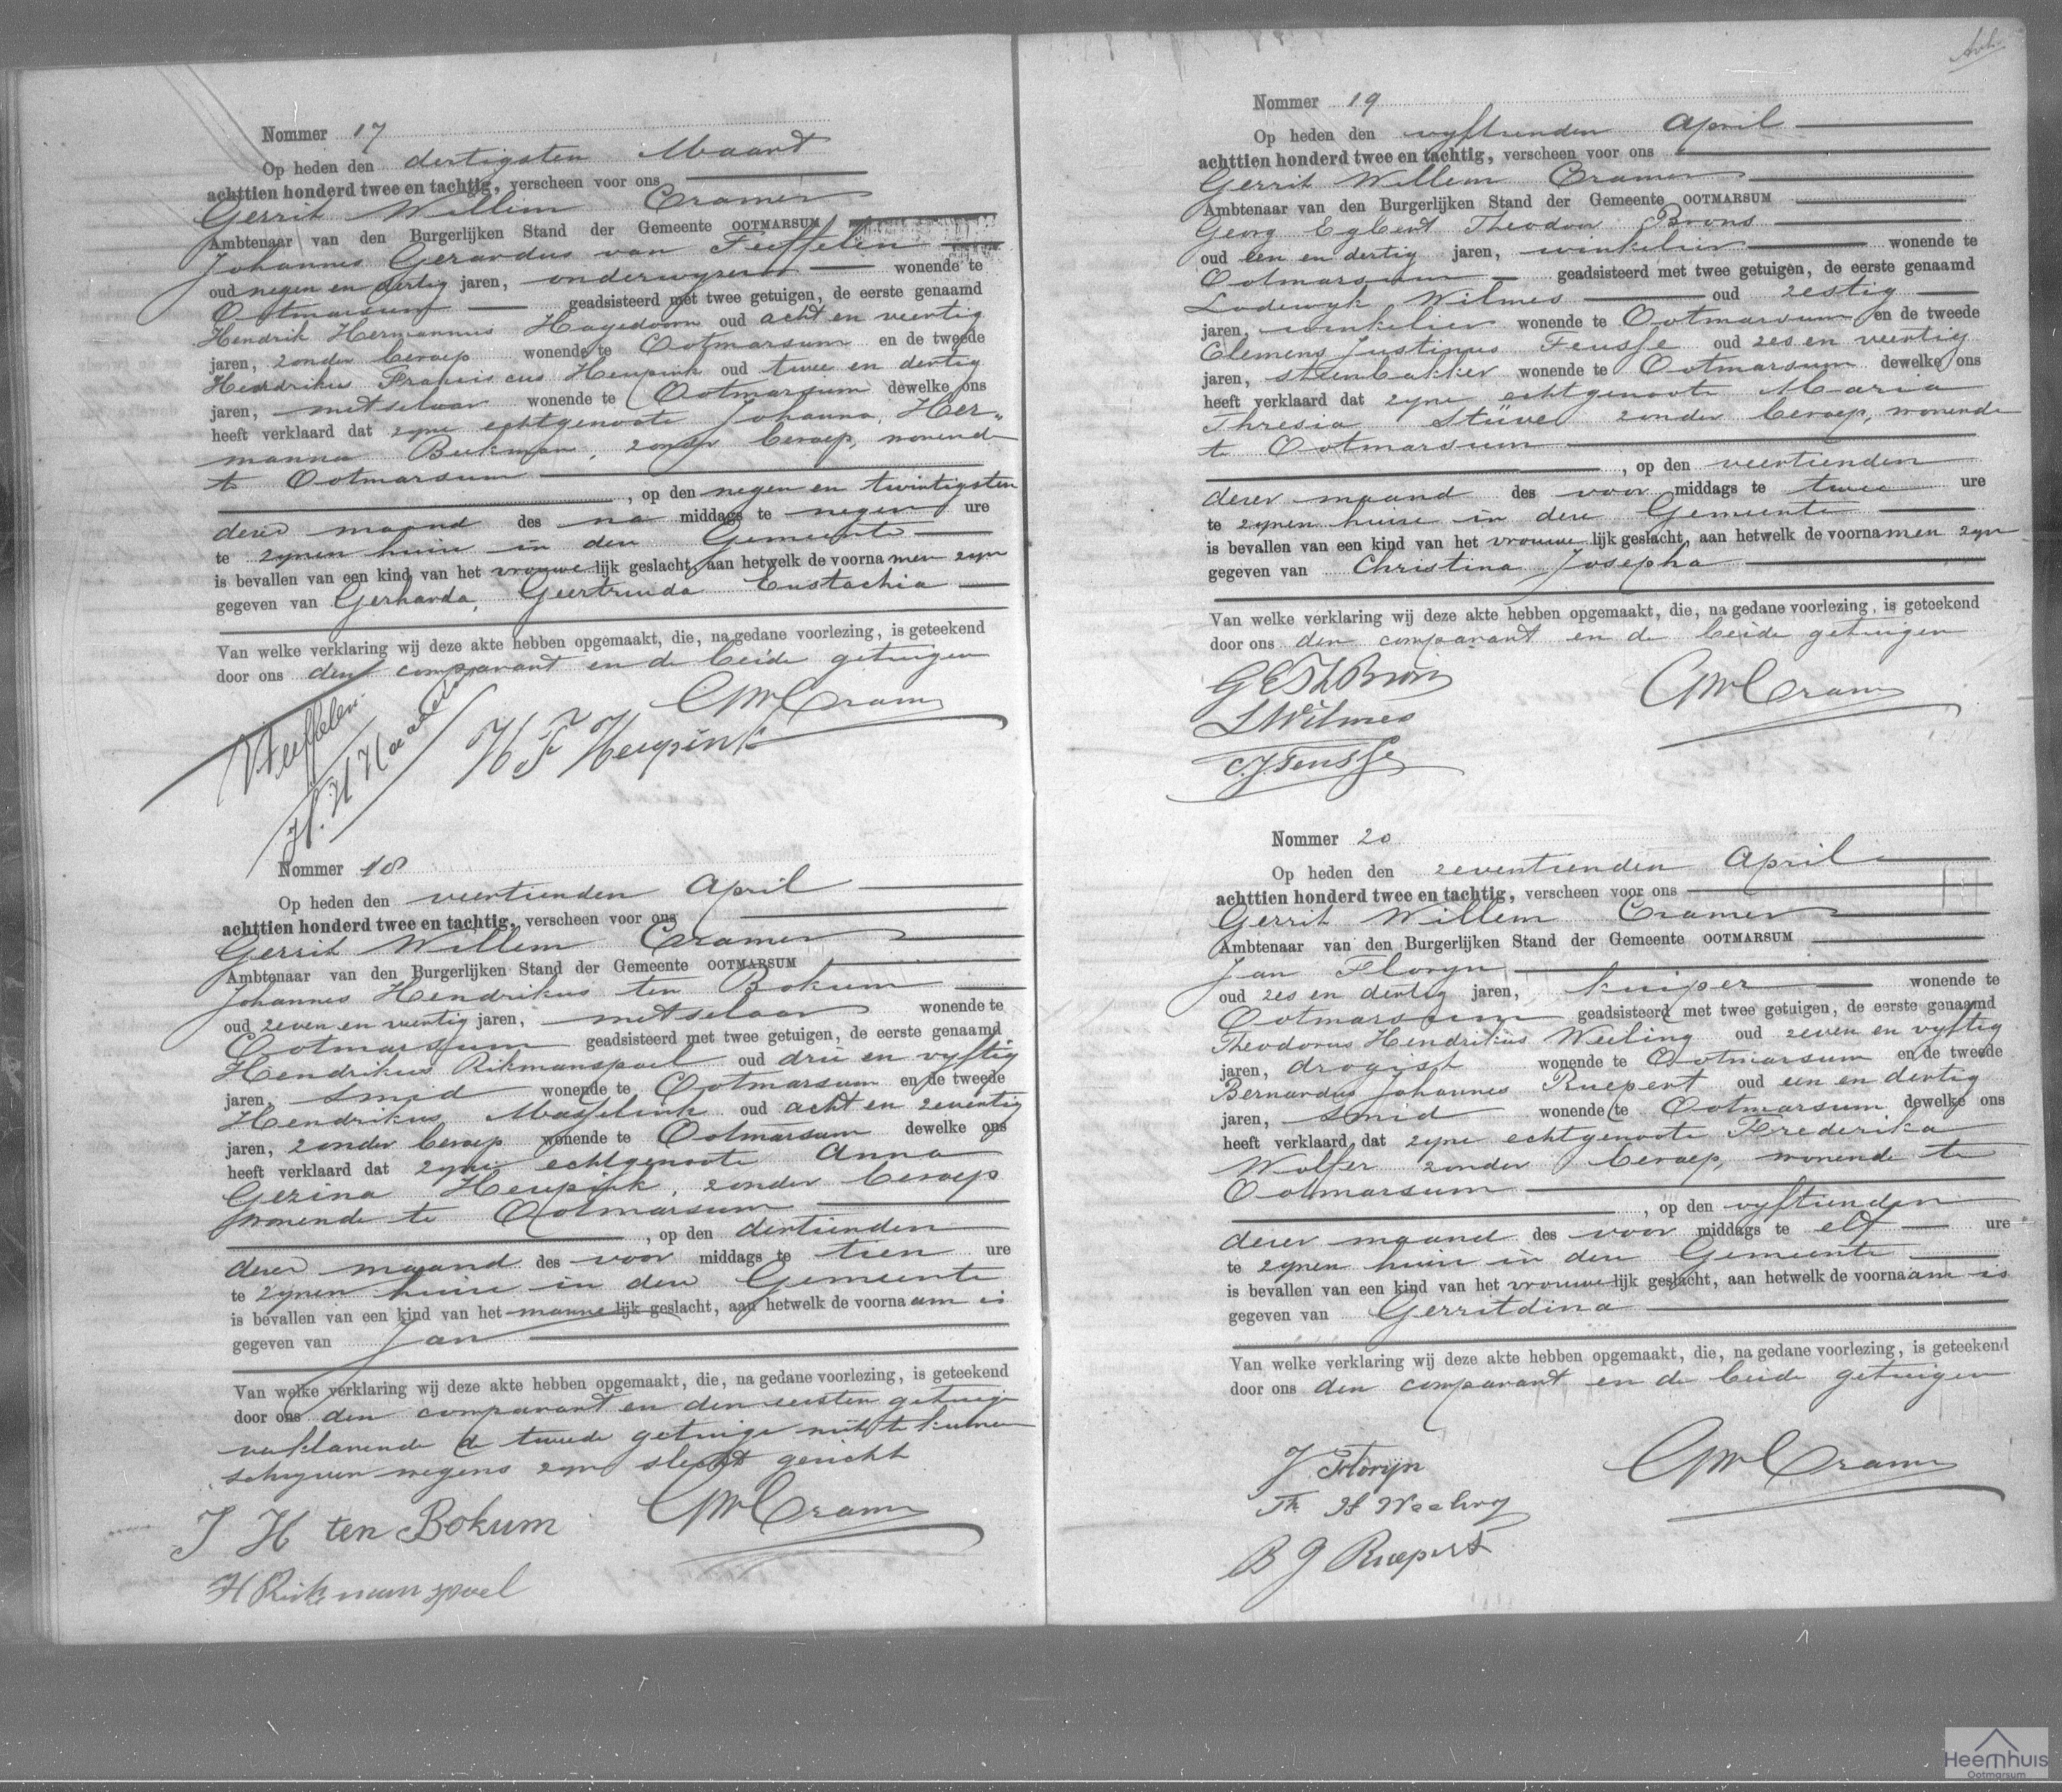 Nommer 17
Op heden den dertigsten Maart
achttien honderd twee en tachtig, verscheen voor ons
Gerrit Willem Cramer
Ambtenaar van den Burgerlijken Stand der Gemeente OOTMARSUM
Johannes Gerardus van Feiffelen
oud negen en dertig jaren, onderwyzer wonende te
Ootmarsum geadsisteerd met twee getuigen, de eerste genaamd
Hendrik Hermannus Hagedoorn oud acht en veertig
jaren, zonder beroep wonende te Ootmarsum en de tweede
Hendrikus Franciscus Heupink oud twee en dertig
jaren, metselaar wonende te Ootmarsum dewelke ons
heeft verklaard dat zyne echtgenoote Johanna Her„
manna Beekman, zonder beroep, wonende
te Ootmarsum
, op den negen en twintigsten
dezer maand des na middags te negen ure
te zynen huize in deze Gemeente
is bevallen van een kind van het vrouwelijk geslacht, aan hetwelk de voornamen zyn
gegeven van Gerharda, Geertruida Eustachia
Van welke verklaring wij deze akte hebben opgemaakt, die, na gedane voorlezing, is geteekend
door ons den comparant en de beide getuigen
GWCramer
H F Heupink
Nommer 18
Op heden den veertienden April
achttien honderd twee en tachtig, verscheen voor ons
Gerrit Willem Cramer
Ambtenaar van den Burgerlijken Stand der Gemeente OOTMARSUM
Johannes Hendrikus ten Bokum
oud zeven en veertig jaren, metselaar wonende te
Ootmarsum geadsisteerd met twee getuigen, de eerste genaamd
Hendrikus Rikmanspoel oud drie en vyftig
jaren, smid wonende te Ootmarsum en de tweede
Hendrikus Masselink oud acht en zeventig
jaren, zonder beroep wonende te Ootmarsum dewelke ons
heeft verklaard dat zyne echtgenoote Anna
Gezina Heupink, zonder beroep
wonende te Ootmarsum
, op den dertienden
dezer maand des voor middags te tien ure
te zynen huize in deze Gemeente
is bevallen van een kind van het mannelijk geslacht, aan hetwelk de voornaam is
gegeven van Jan
Van welke verklaring wij deze akte hebben opgemaakt, die, na gedane voorlezing, is geteekend
door ons den comparant en den eersten getuige
verklarende de tweede getuige niet te kunnen
schryven wegens zyn slecht gezicht
J H ten Bokum GWCramer
H Rikmanspoel
Nommer 19
Op heden den vyftienden April
achttien honderd twee en tachtig, verscheen voor ons
Gerrit Willem Cramer
Ambtenaar van den Burgerlijken Stand der Gemeente OOTMARSUM
Georg Egbert Theodoor Brons
oud een en dertig jaren, winkelier wonende te
Ootmarsum geadsisteerd met twee getuigen, de eerste genaamd
Lodewyk Wilmes oud zestig
jaren, winkelier wonende te Ootmarsum en de tweede
Clemens Justinus Feusse oud zes en veertig
jaren, steenbakker wonende te Ootmarsum dewelke ons
heeft verklaard dat zyne echtgenoote Maria
Thresia Stüve zonder beroep, wonende
te Ootmarsum
, op den veertienden
dezer maand des voor middags te twee ure
te zynen huize in deze Gemeente
is bevallen van een kind van het vrouwelijk geslacht, aan hetwelk de voornamen zyn
gegeven van Christina Josepha
Van welke verklaring wij deze akte hebben opgemaakt, die, na gedane voorlezing, is geteekend
door ons den comparant en de beide getuigen
GEThBrons GWCramer
LWilmes
C.J.Feusse
Nommer 20
Op heden den zeventienden April
achttien honderd twee en tachtig, verscheen voor ons
Gerrit Willem Cramer
Ambtenaar van den Burgerlijken Stand der Gemeente OOTMARSUM
Jan Floryn
oud zes en dertig jaren, kuiper wonende te
Ootmarsum geadsisteerd met twee getuigen, de eerste genaamd
Theodorus Hendrikus Weeling oud zeven en vyftig
jaren, drogist wonende te Ootmarsum en de tweede
Bernardus Johannes Ruepert oud een en dertig
jaren, smid wonende te Ootmarsum dewelke ons
heeft verklaard dat zyne echtgenoote Frederika
Wolfer zonder beroep, wonende te
Ootmarsum
, op den vyftienden
dezer maand des voor middags te elf ure
te zynen huize in deze Gemeente
is bevallen van een kind van het vrouwelijk geslacht, aan hetwelk de voornaam is
gegeven van Gerritdina
Van welke verklaring wij deze akte hebben opgemaakt, die, na gedane voorlezing, is geteekend
door ons den comparant en de beide getuigen
J Florijn GWCramer
Th H Weeling
B J Ruepert
Heemhuis
Ootmarsum